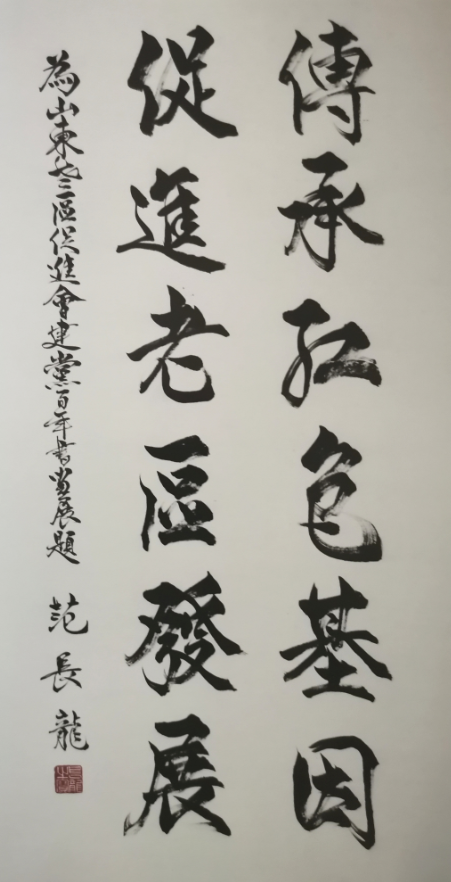 傳承紅色基因
促進老區發展
為山東老區促進會建黨百年書畫展題
范長龍